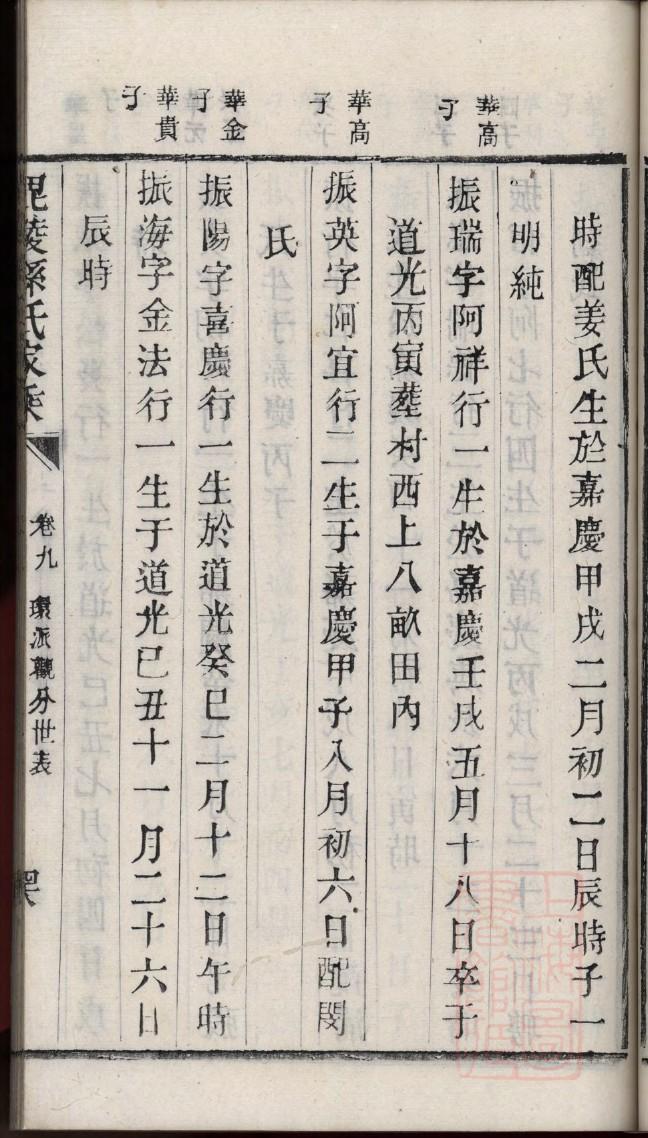 時配姜氏生於嘉慶甲戌二月初二日辰時子一
明純
華高子
振瑞字阿祥行一生於嘉慶壬戌五月十八日卒于
道光丙寅塟村西上八畝田內
華高子
振英字阿宜行二生于嘉慶甲子八月初六日配閔
氏
華金子
振陽字喜慶行一生於道光癸巳二月十二日午時
華貴子
振海字金法行一生于道光己丑十一月二十六日
辰時
毘陵孫氏家乘
卷九 環派觀分世表